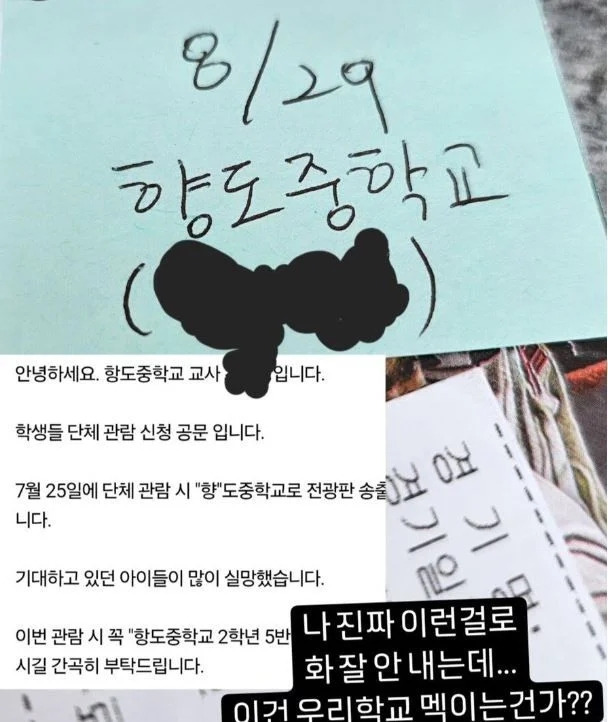 8/29
향도중학교
( )
안녕하세요. 항도중학교 교사 입니다.
학생들 단체 관람 신청 공문 입니다.
7월 25일에 단체 관람 시 "향"도중학교로 전광판 송출
니다.
기대하고 있던 아이들이 많이 실망했습니다.
이번 관람 시 꼭 "항도중학교 2학년 5반
시길 간곡히 부탁드립니다.
경 기 명
경기일
나 진짜 이런걸로
화 잘 안 내는데...
이건 우리학교 멕이는건가??